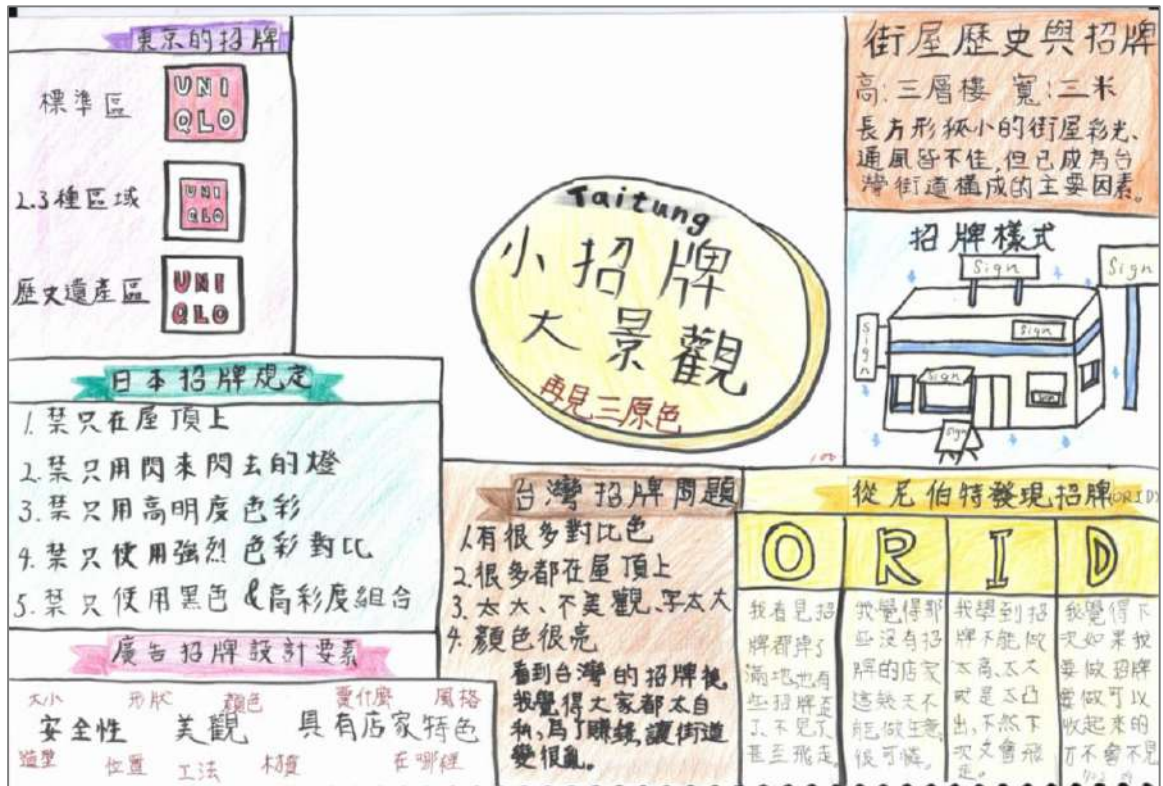 東京的招牌
標準區
UNI
QLO
2.3種區域
UNI
QLO
歷史遺產區
UNI
QLO
日本招牌規定
1. 禁只在屋頂上
2. 禁只用閃來閃去的燈
3. 禁只用高明度色彩
4. 禁只使用強烈色彩對比
5. 禁只使用黑色&高彩度組合
廣告招牌設計要素
大小 形狀 顏色 賣什麼 風格
安全性 美觀 具有店家特色
造型 位置 工法 材質 在哪裡
Taitung
小招牌
大景觀
再見三原色
台灣招牌問題
1.有很多對比色
2.很多都在屋頂上
3.太大、不美觀、字太大
4.顏色很亮
看到台灣的招牌後,
我覺得大家都太自
私,為了賺錢,讓街道
變很亂。
街屋歷史與招牌
高:三層樓 寬:三米
長方形狹小的街屋彩光、
通風皆不佳,但已成為台
灣街道構成的主要因素。
招牌樣式
Sign
Sign
Sign
Sign
Sign
Sign
從尼伯特發現招牌(ORID)
O
我看見招
牌都掉了
滿地也有
些招牌歪
了、不見了
甚至飛走。
R
我覺得那
些沒有招
牌的店家
這幾天不
能做生意,
很可憐。
I
我學到招
牌不能做
太高、太大
或是太凸
出,不然下
次又會飛
走。
D
我覺得下
次如果我
要做招牌
要做可以
收起來的
才不會不見